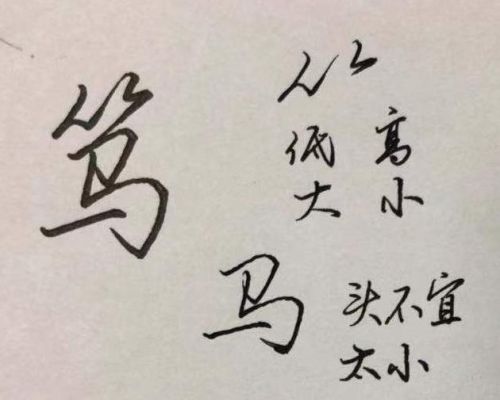 笃
⺮
低 高
大 小
马 头不宜
太小